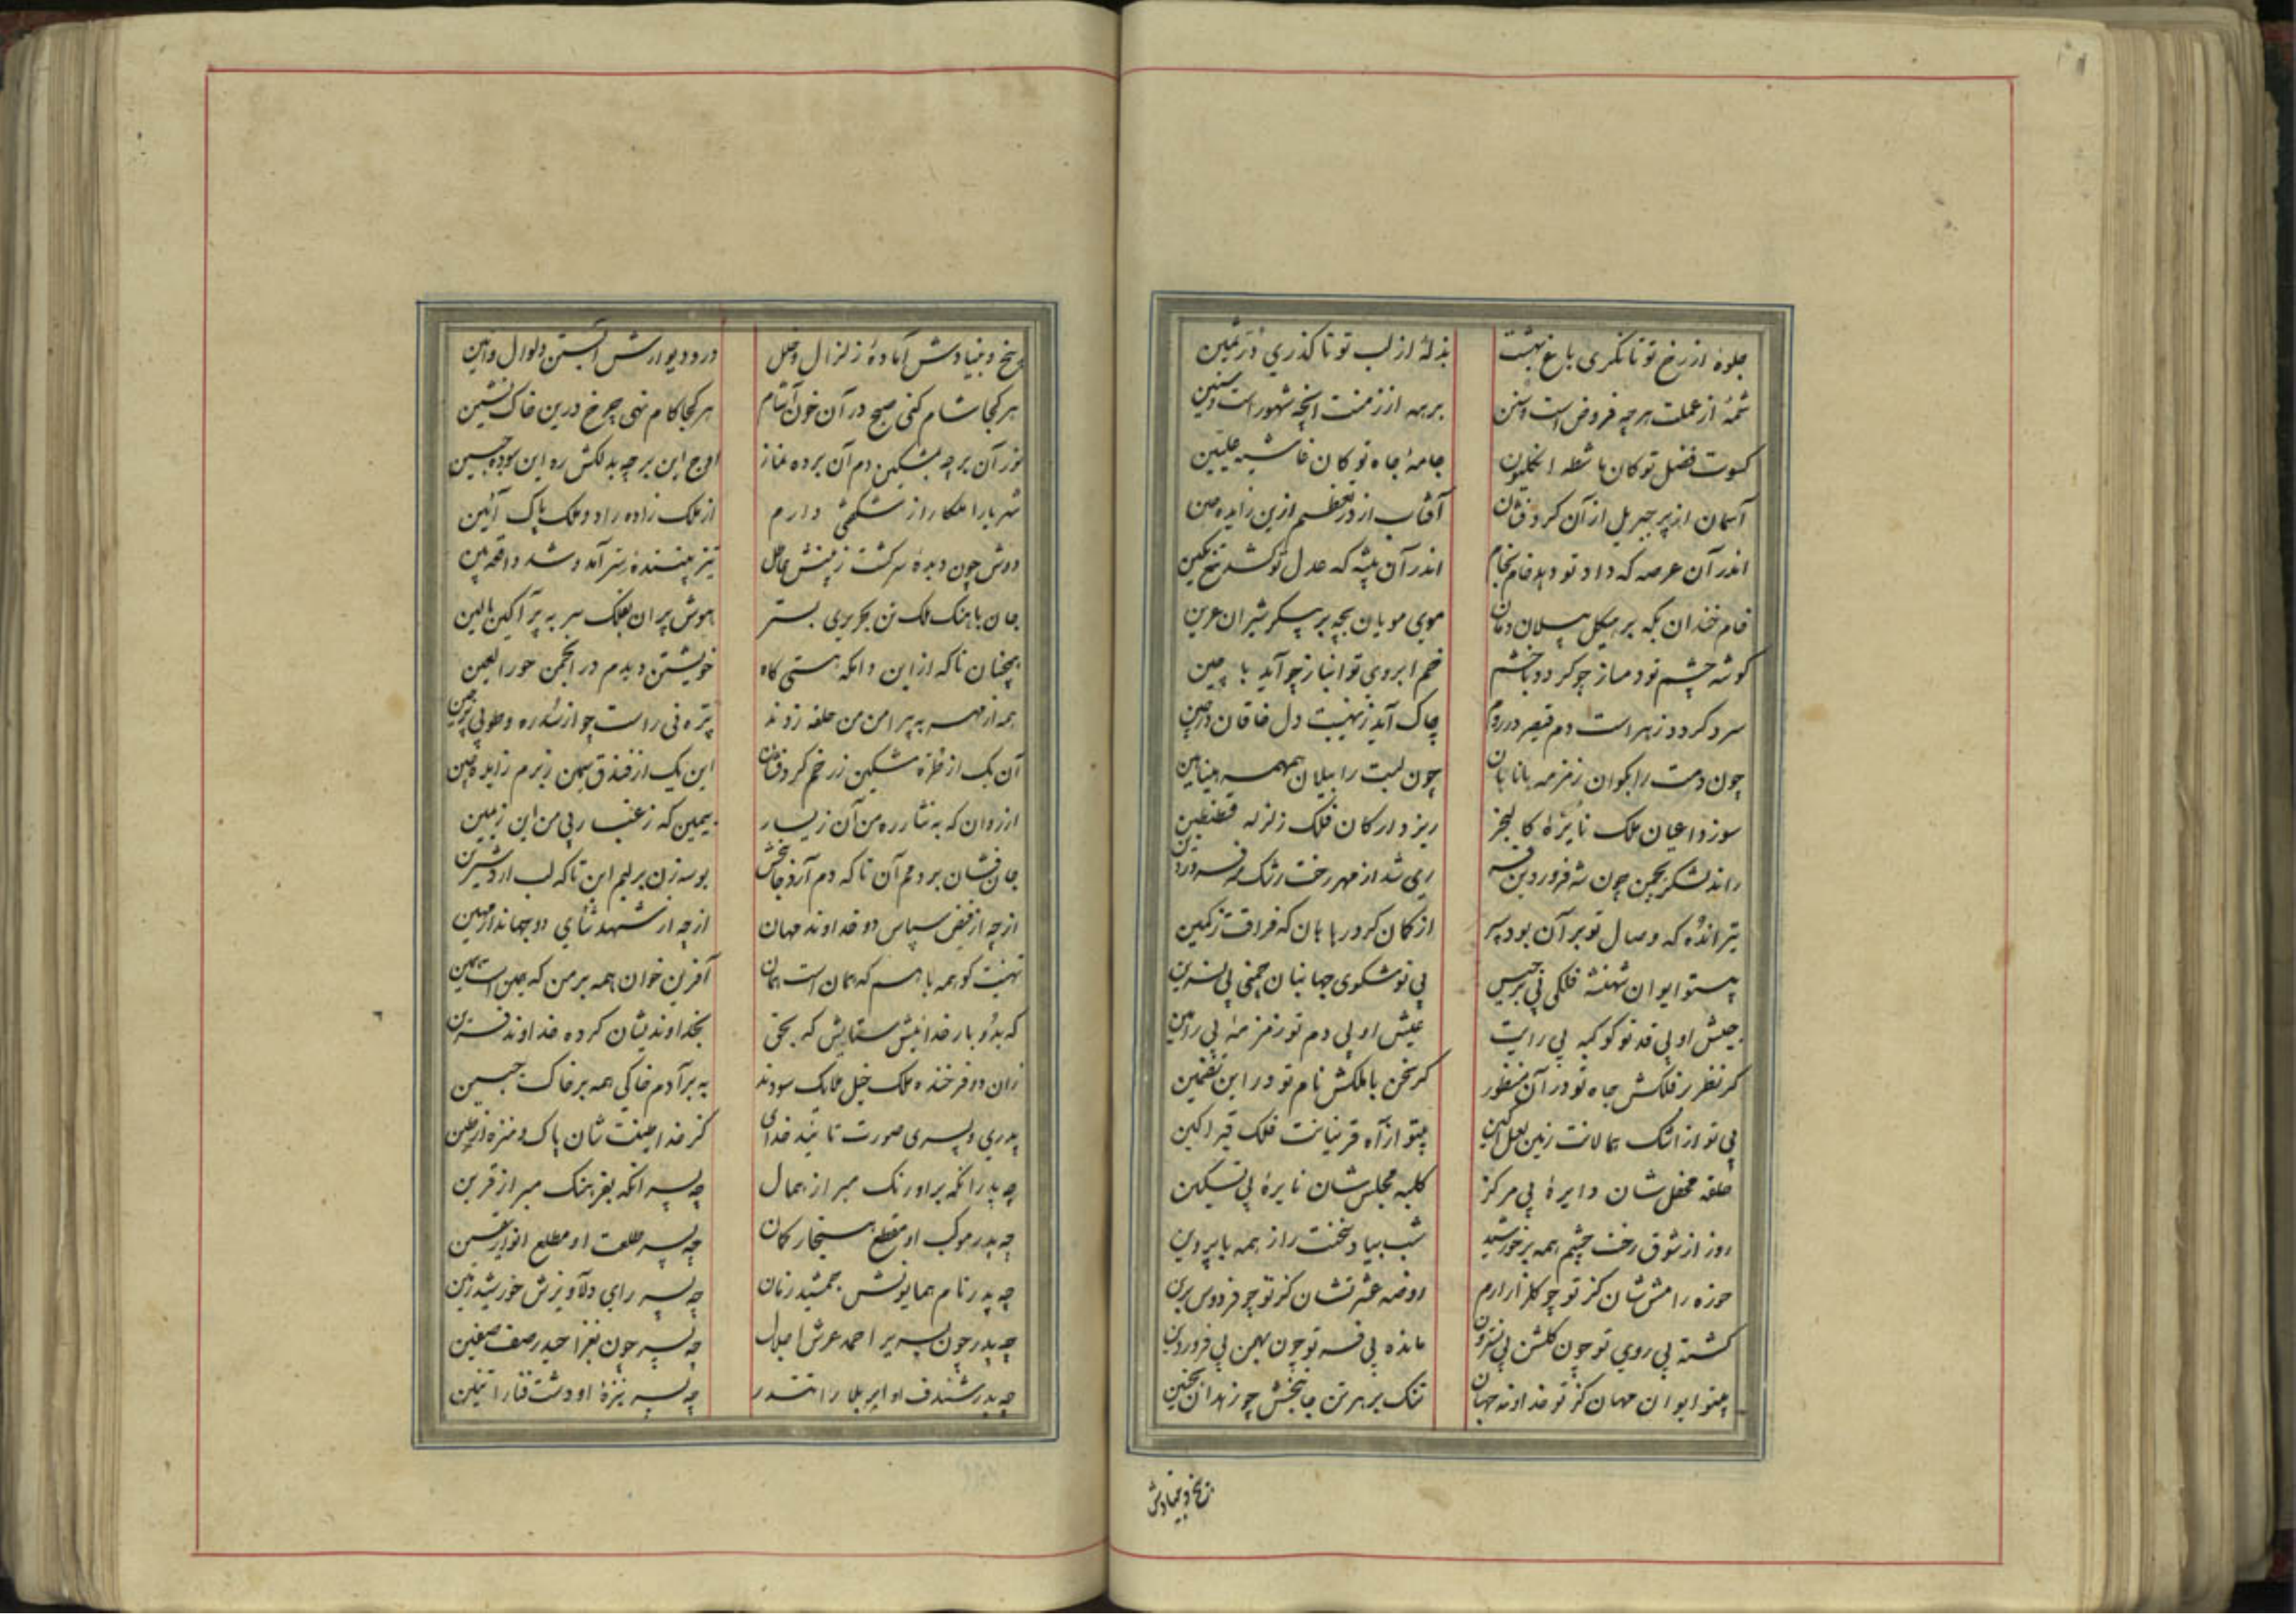 جلوهٔ از رخ تو تا نکری باغ بهشت بذلهٔ از لب تو تا کذری درّ ثمین
شمهٔ از عملت هرچه فروض است و سنن برهه از زمنت آنچه شهور است و سنین
کسوت فضل تو کان ماشطه انکلیون جامهٔ جاه تو کان غاشیه علیین
آسمان از پر جبریل از آن کرد فشان آفتاب از در تعظیم ازین زاید چین
اندر آن عرصه که داد تو دهد خام بخام اندر آن بیشه که عدل تو کشد تیغ بکین
خام خندان بکه بر هیکل پیلان دمان موی مویان بچه بر پیکر شیران عرین
کوشه چشم تو دمساز چو کردد با خشم خم ابروی تو انباز چو آید با چین
سرد کردد ز هراست دم قیصر در روم چاک آید ز نهیبت دل خاقان در چین
چون دمت را بکوان زمزمه یا نابان چون لبت را بیلان همهمه هینا هین
سوزد اعیان ملک نایرهٔ کالبحر ریزد ارکان فلک زلزله
راند لشکر بچمن چون شه فروردین فر ری شد از مهر رخت رشک مه فروردین
تیر اندُه که وصال تو بر آن بود سپر از کمان کرد رها هان که فراقت ز کمین
بیتو ایوان شهنشه فلکی بی برجیس بی تو مشکوی جهانبان چمنی بی نسرین
جیش او بی قد تو کوکبه بی رایت عیش او بی دم تو زمزمهٔ بی رامین
کر نظر بر فلکش جاه تو در آن منظور کر سخن با ملکش نام تو در این تضمین
بی تو از اشک همالانت زمین لعل آکین بیتو از آه قرینانت فلک قیر آکین
حلقه محفل شان دایرهٔ بی مرکز کلبه مجلس شان نایرهٔ بی تسکین
روز از شوق رخت چشم همه بر خورشید شب بیاد سخنت راز همه با پروین
حوزه رامش شان کز تو چو کلزار ارم روضه عشرتشان کز تو چو فردوس برین
کشته بی روی تو چون کلشن بی نسترون مانده بی فر تو چون بهمن بی فروردین
بیتو ایوان مهان کز تو خداوند جهان تنک بر هر تن جانبخش چو زندان تکین
بیخ و بنیادش
بیخ و بنیادش آمادهٔ زلزال و خلل در و دیوارش آبستن ولوال و انین
هر کجا شام کنی صبح در آن خون آشام هر کجا کام نهی چرخ درین خاک نشین
نور آن برجه بمشکین دم آن برده نماز اوج این برجه بدلکش ره این سوده جبین
شهریارا ملکا راز شکفتی دارم از ملک زاده راد و ملک پاک آئین
دوش چون دیدهٔ سر کشت ز بینش عاطل تیز بیننده سر آمد و شد واقعه بین
جان باهنک ملک تن بحریری بستر هوش پران بفلک سر به پر آکین بالین
همچنان تا که ازاین دامکه هستی کاه خویشتن دیدم در انجمن حور العین
همه از مهر به پیرامن من حلقه زدند تیره نی راست چو از سدره و طوبی پرچین
آن یک از طرهٔ مشکین ز رخم کرد فشان این یک از فندق سیمین ز برم زاید چین
از روان که به نثار ره من آن ز یسار بیمین که ز عنبر پی من این ز یمین
جان فشان بر دمم آن تا که دم آرد جانبخش بوسه زن بر لبم این تا که لب آرد شیرین
ازچه از فیض سپاس دو خداوند مهان ازچه از شهد ثنای دو جهاندار مهین
تهنیت کو همه باهم که همان است همان آفرین خوان همه بر من که همین است همین
که بدُو بار خدائیش ستایش که بحق بخداوندیشان کرده خداوند قرین
زان دو فرخنده ملک خیل ملایک سودند به بر آدم خاکی همه بر خاک جبین
پدری و پسری صورت تایید خدای کز خدا طینت شان پاک و منزه از طین
چه پدر آنکه براورنک مبر از همال چه پسر آنکه بفرهنک مبر از قرین
چه پدر موکب او مقطع سنجار کان چه پسر طلعت او مطلع انوار یقین
چه پدر نام همایونش جمشید زمان چه پسر رای دلاویزش خورشید زمین
چه پدر چون بسریر احمد عرش اجلال چه پسر چون بغزا حیدر صف صفین
چه پدر شندف او ابر بلا را تندر چه پسر نیزهٔ او دشت فنا را تنین